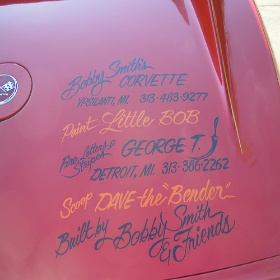 Bobby Smith's
CORVETTE
YPSILANTI, MI. 313-483-9277
Paint Little BOB
Fine Letters & Stripes GEORGE T.
DETROIT, MI. 313-386-2262
Scoop DAVE-the "Bender"
Built by Bobby Smith
& Friends